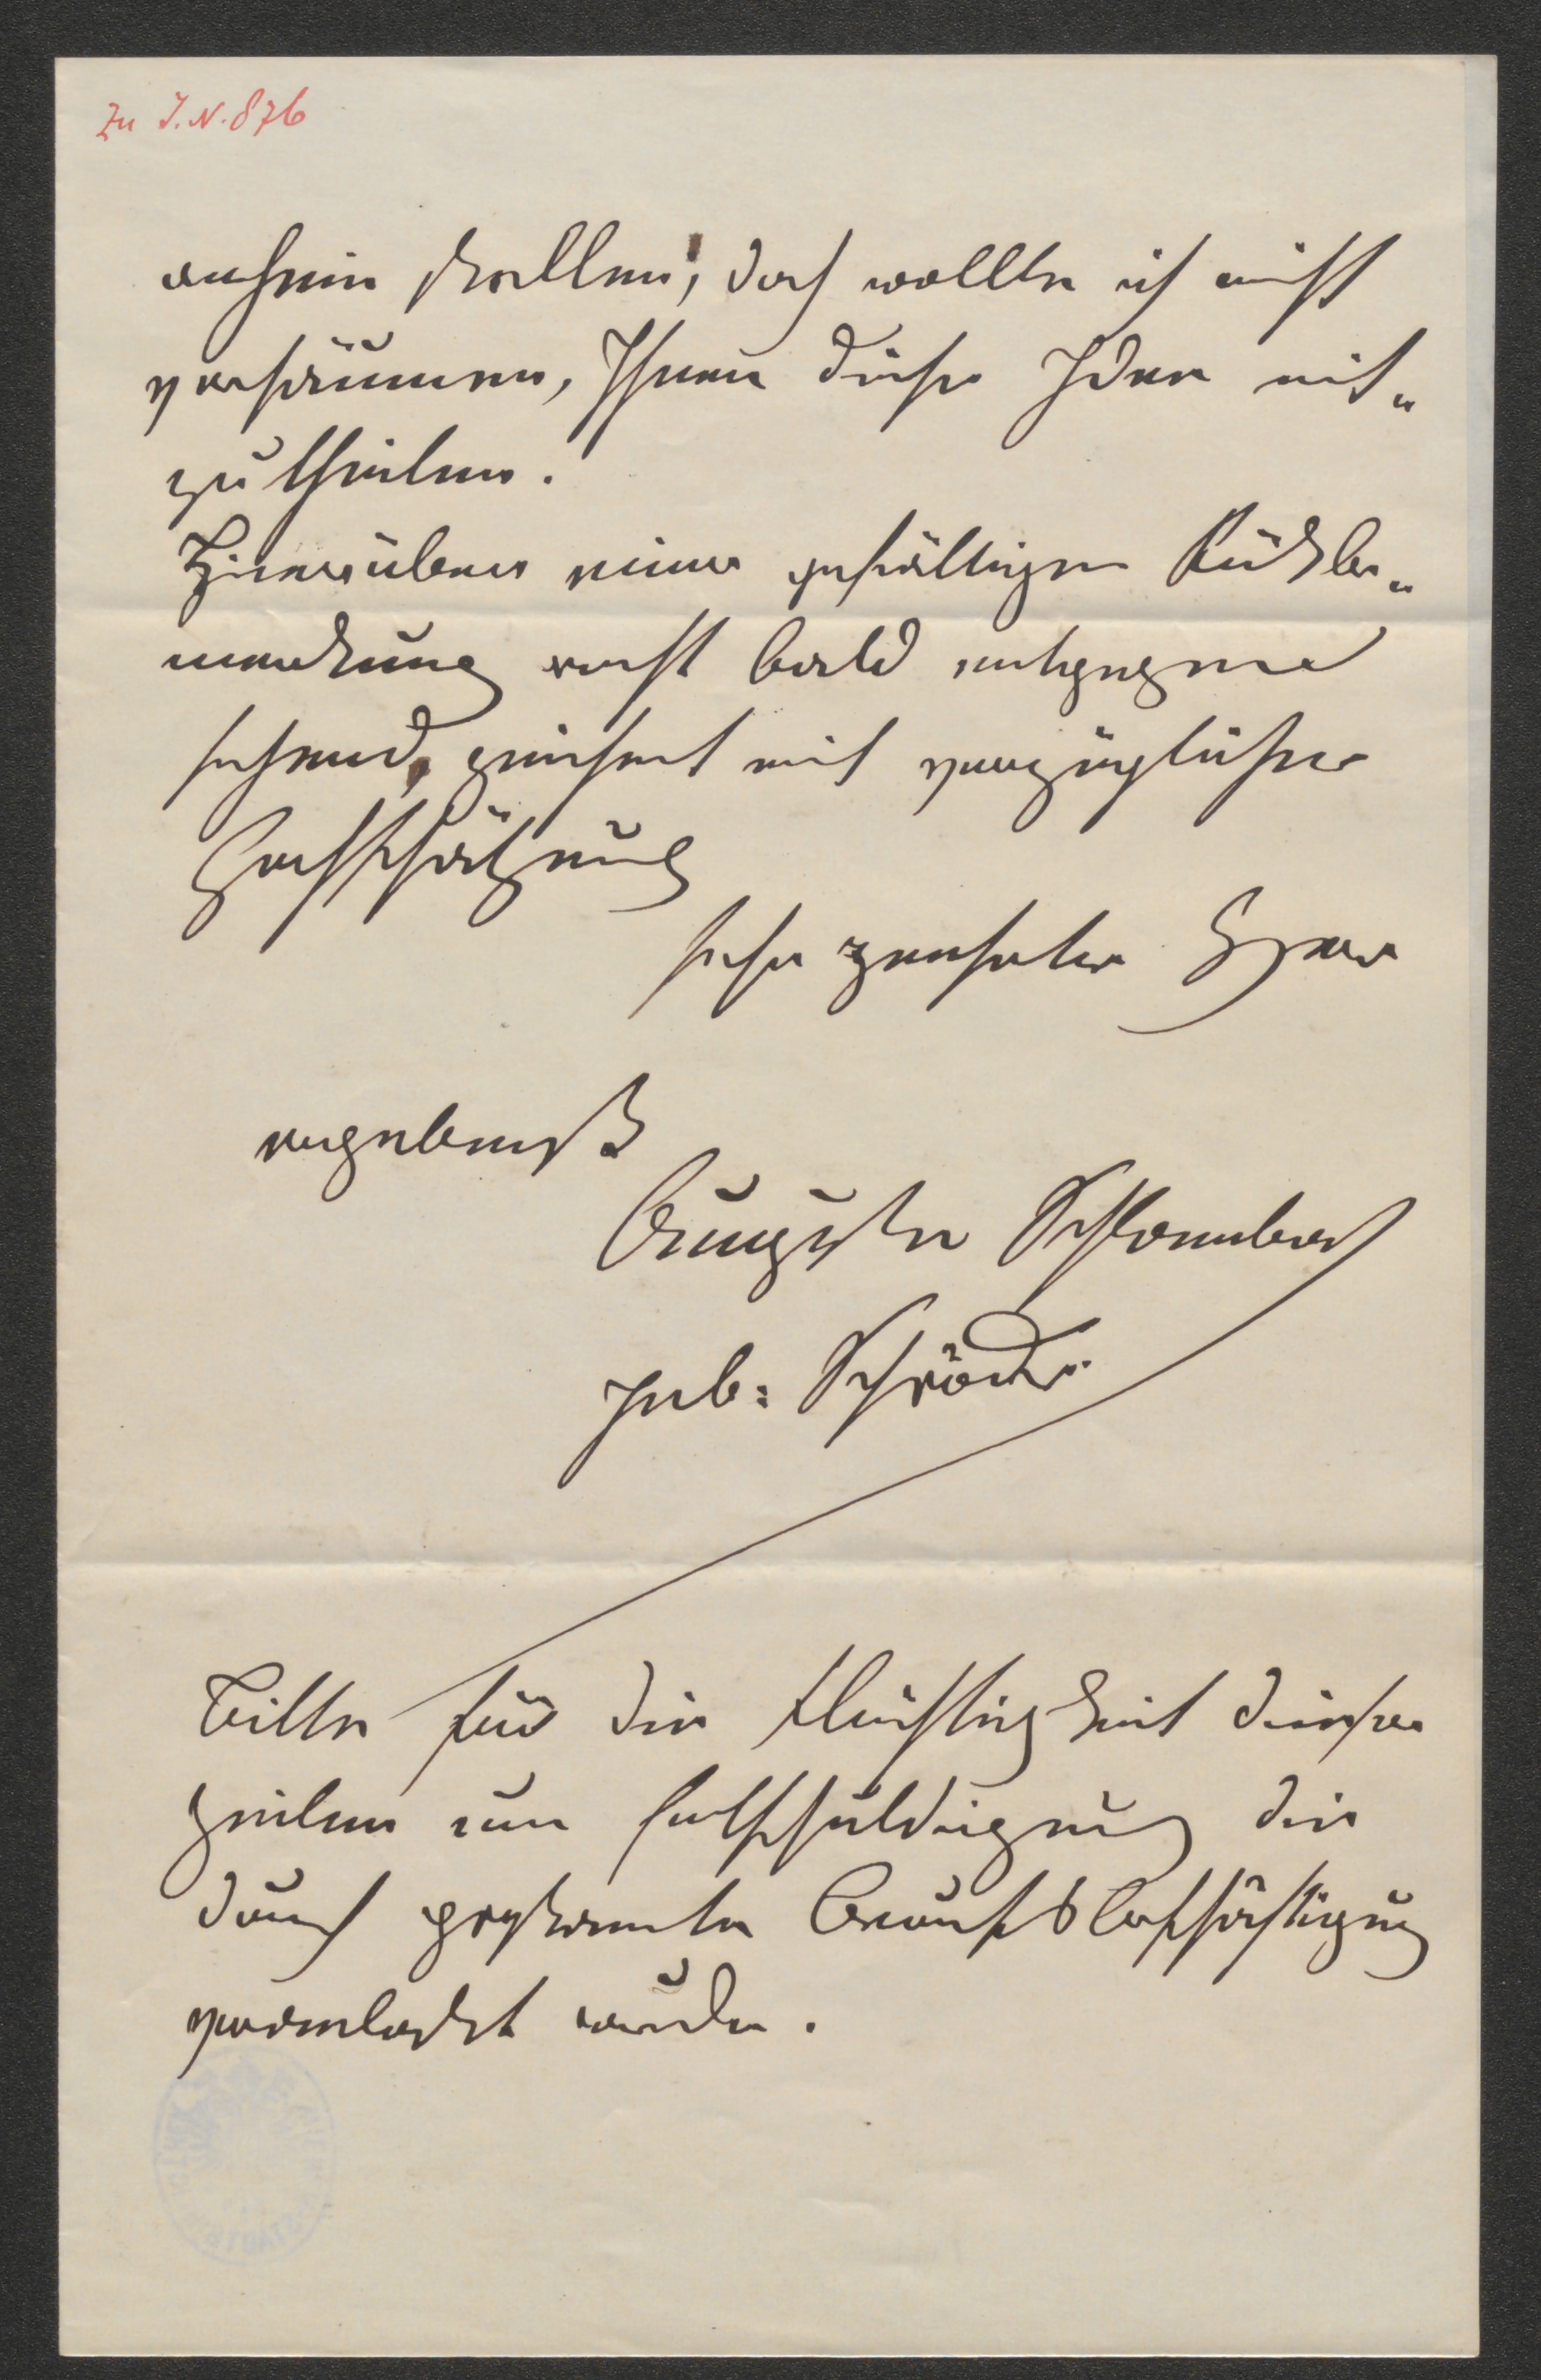 Zu I.N. 876
anheim stellen, doch wollte ich nicht
versäumen, Ihnen diese Idee mit-
zutheilen.
Hierüber einer gefälligen Rückbe-
merkung recht bald entgegen
sehend, zeichnet mit vorzüglicher
Hochschätzung
sehr geehrter Herr
ergebenst
Auguste Schlambach
geb: Schröder.
Bitte für die Flüchtigkeit dieser
Zeilen um Entschuldigung die
durch Berufsbeschäftigung
veranlaßt wurde.